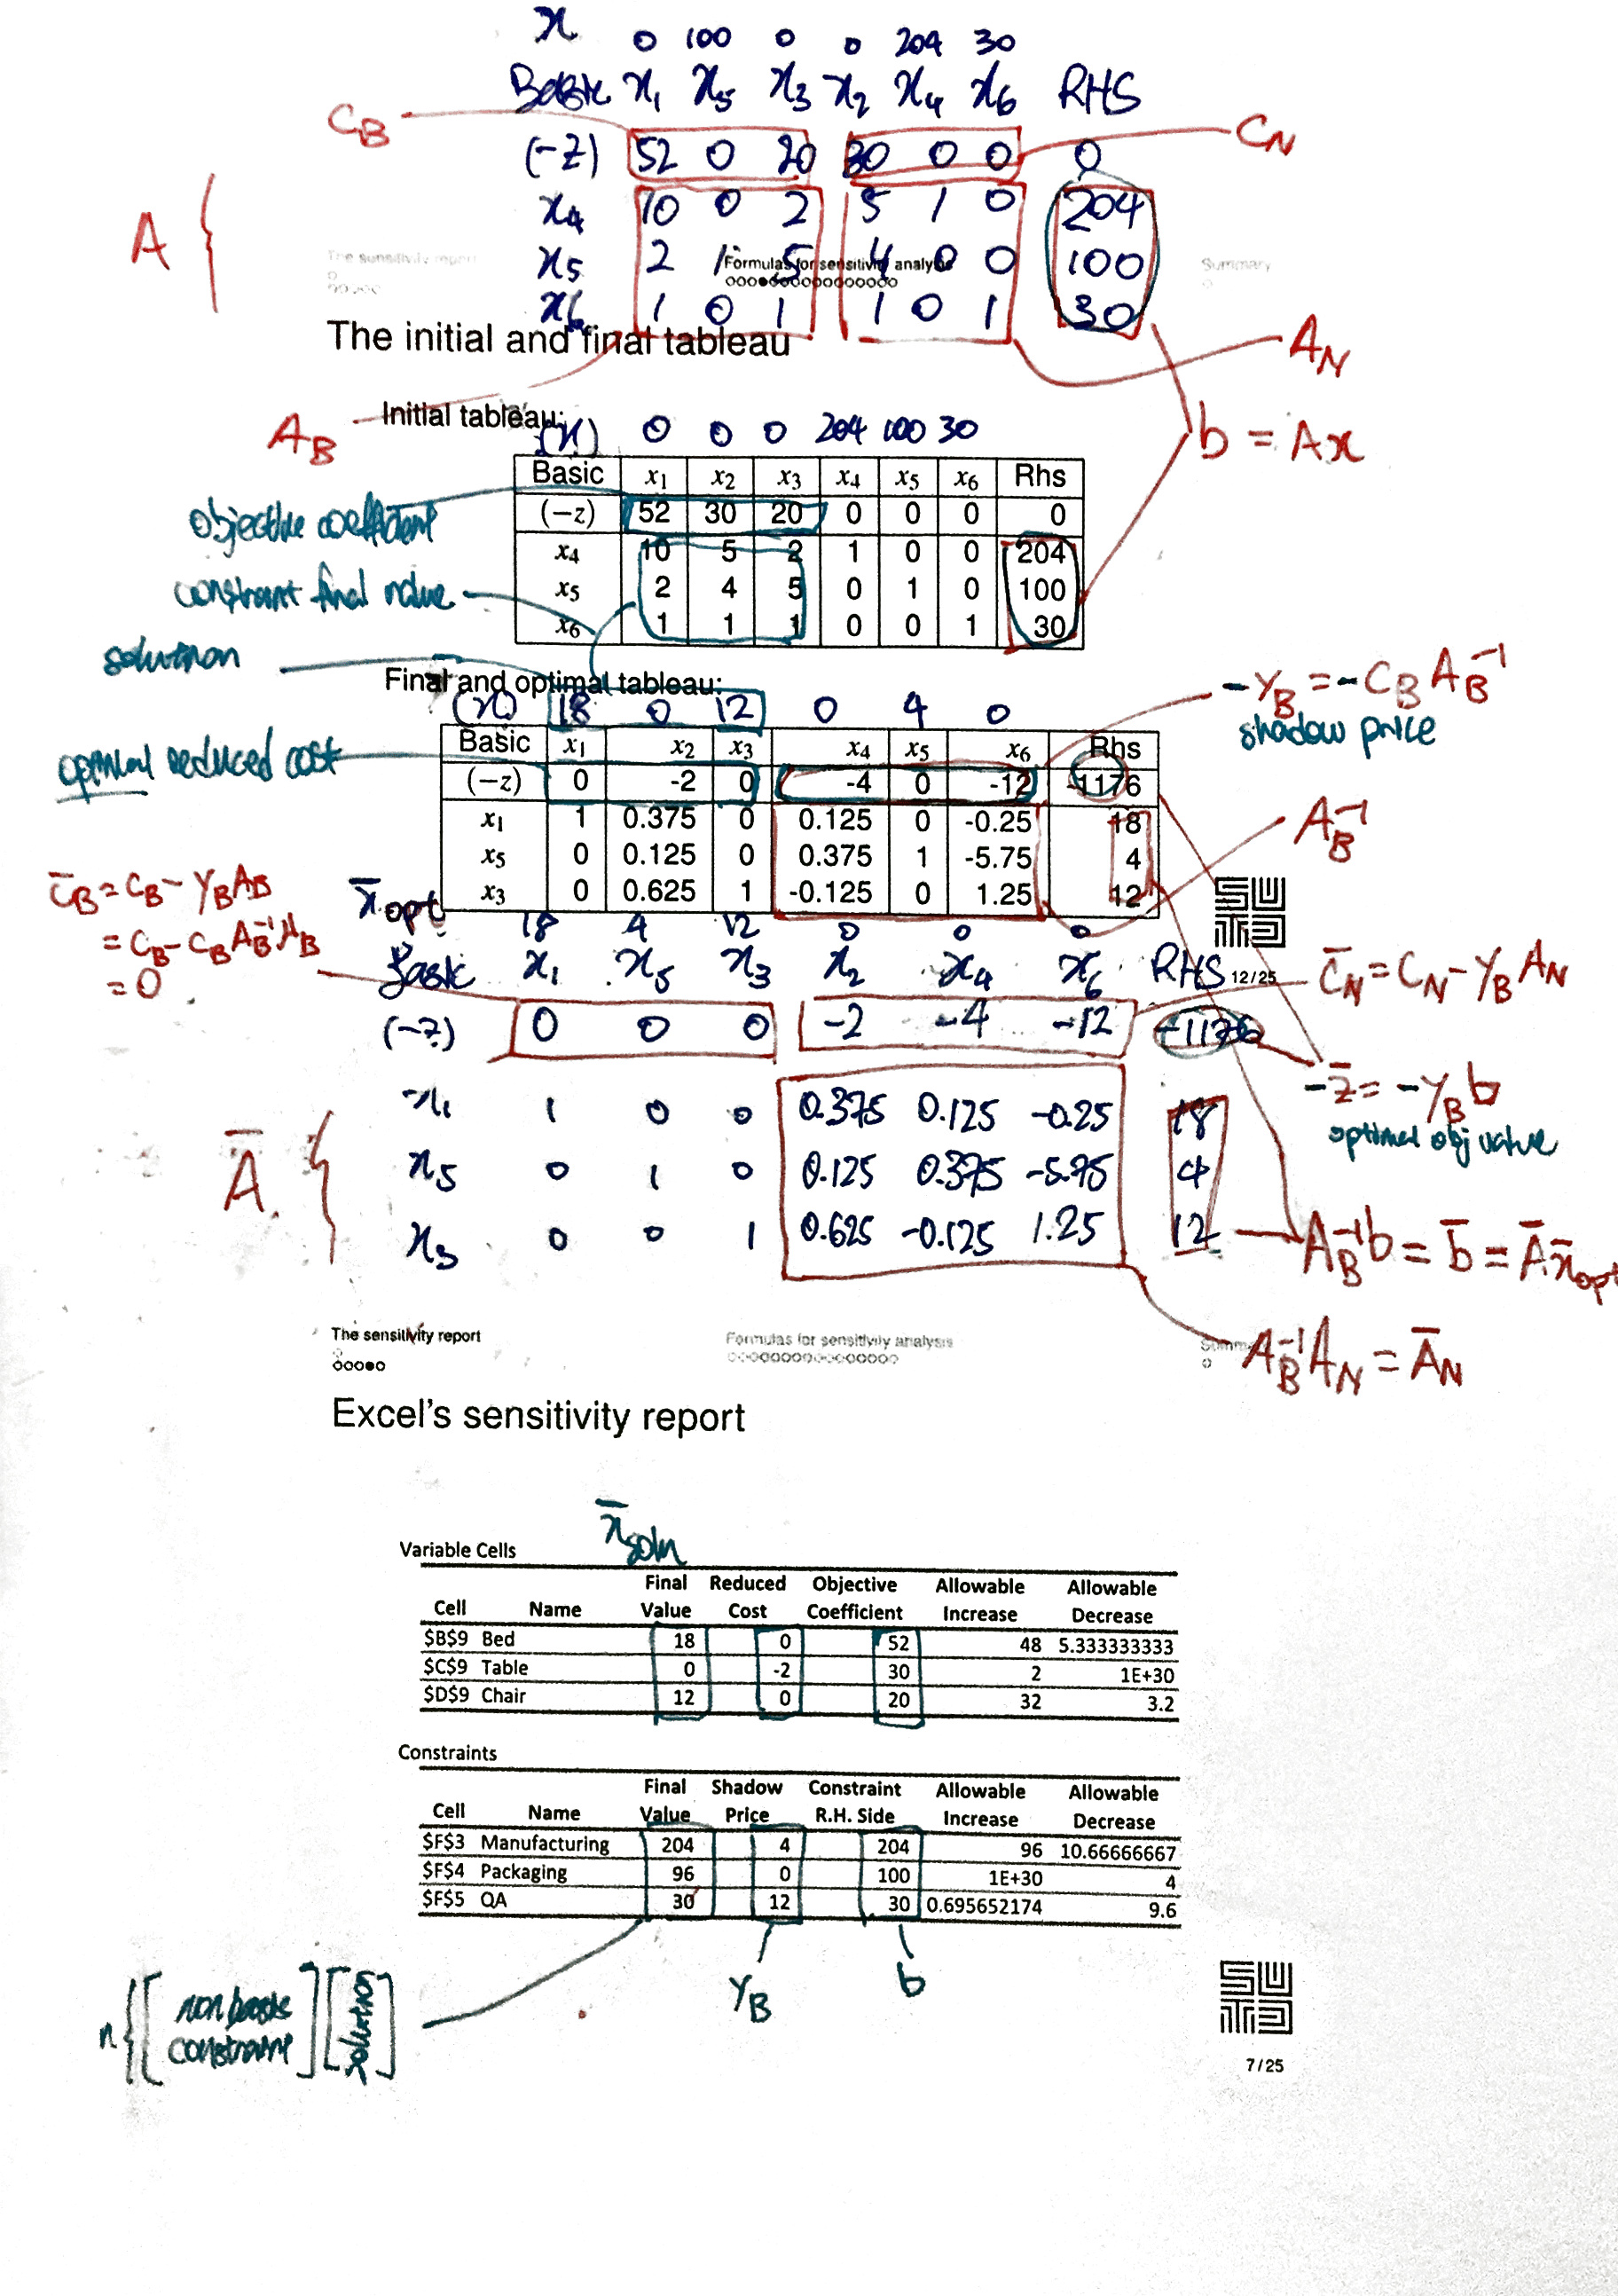 x 0 100 0 0 204 30
Basic x1 x5 x3 x2 x4 x6 RHS
CB
(-Z) 52 0 20 30 0 0 0
CN
A {
x4 10 0 2 5 1 0 204
x5 2 1 5 4 0 0 100
x6 1 0 1 1 0 1 30
The sensitivity report
Formulas for sensitivity analysis
Summary
The initial and final tableau
AN
AB
Initial tableau:
(x) 0 0 0 204 100 30
b = Ax
Basic x1 x2 x3 x4 x5 x6 Rhs
(−z) 52 30 20 0 0 0 0
x4 10 5 2 1 0 0 204
x5 2 4 5 0 1 0 100
x6 1 1 1 0 0 1 30
objective coefficient
constraint final value
solution
Final and optimal tableau:
(x) 18 0 12 0 4 0
-YB = -CB AB⁻¹
shadow price
optimal reduced cost
Basic x1 x2 x3 x4 x5 x6 Rhs
(−z) 0 -2 0 -4 0 -12 -1176
x1 1 0.375 0 0.125 0 -0.25 18
x5 0 0.125 0 0.375 1 -5.75 4
x3 0 0.625 1 -0.125 0 1.25 12
AB⁻¹
C̄B = CB - YB AB
= CB - CB AB⁻¹ AB
= 0
x̄opt 18 4 12 0 0 0
Basic x1 x5 x3 x2 x4 x6 RHS
12/25
(-z) 0 0 0 -2 -4 -12 -1176
C̄N = CN - YB AN
-z̄ = -YB b
optimal obj value
Ā {
x1 1 0 0 0.375 0.125 -0.25 18
x5 0 1 0 0.125 0.375 -5.75 4
x3 0 0 1 0.625 -0.125 1.25 12
AB⁻¹b = b̄ = Ā x̄opt
AB⁻¹AN = ĀN
The sensitivity report
Formulas for sensitivity analysis
Excel's sensitivity report
x̄soln
Variable Cells
Final Reduced Objective Allowable Allowable
Cell Name Value Cost Coefficient Increase Decrease
$B$9 Bed 18 0 52 48 5.333333333
$C$9 Table 0 -2 30 2 1E+30
$D$9 Chair 12 0 20 32 3.2
Constraints
Final Shadow Constraint Allowable Allowable
Cell Name Value Price R.H. Side Increase Decrease
$F$3 Manufacturing 204 4 204 96 10.66666667
$F$4 Packaging 96 0 100 1E+30 4
$F$5 QA 30 12 30 0.695652174 9.6
YB
b
n { [ non basic constraint ] [ solution ]
7/25